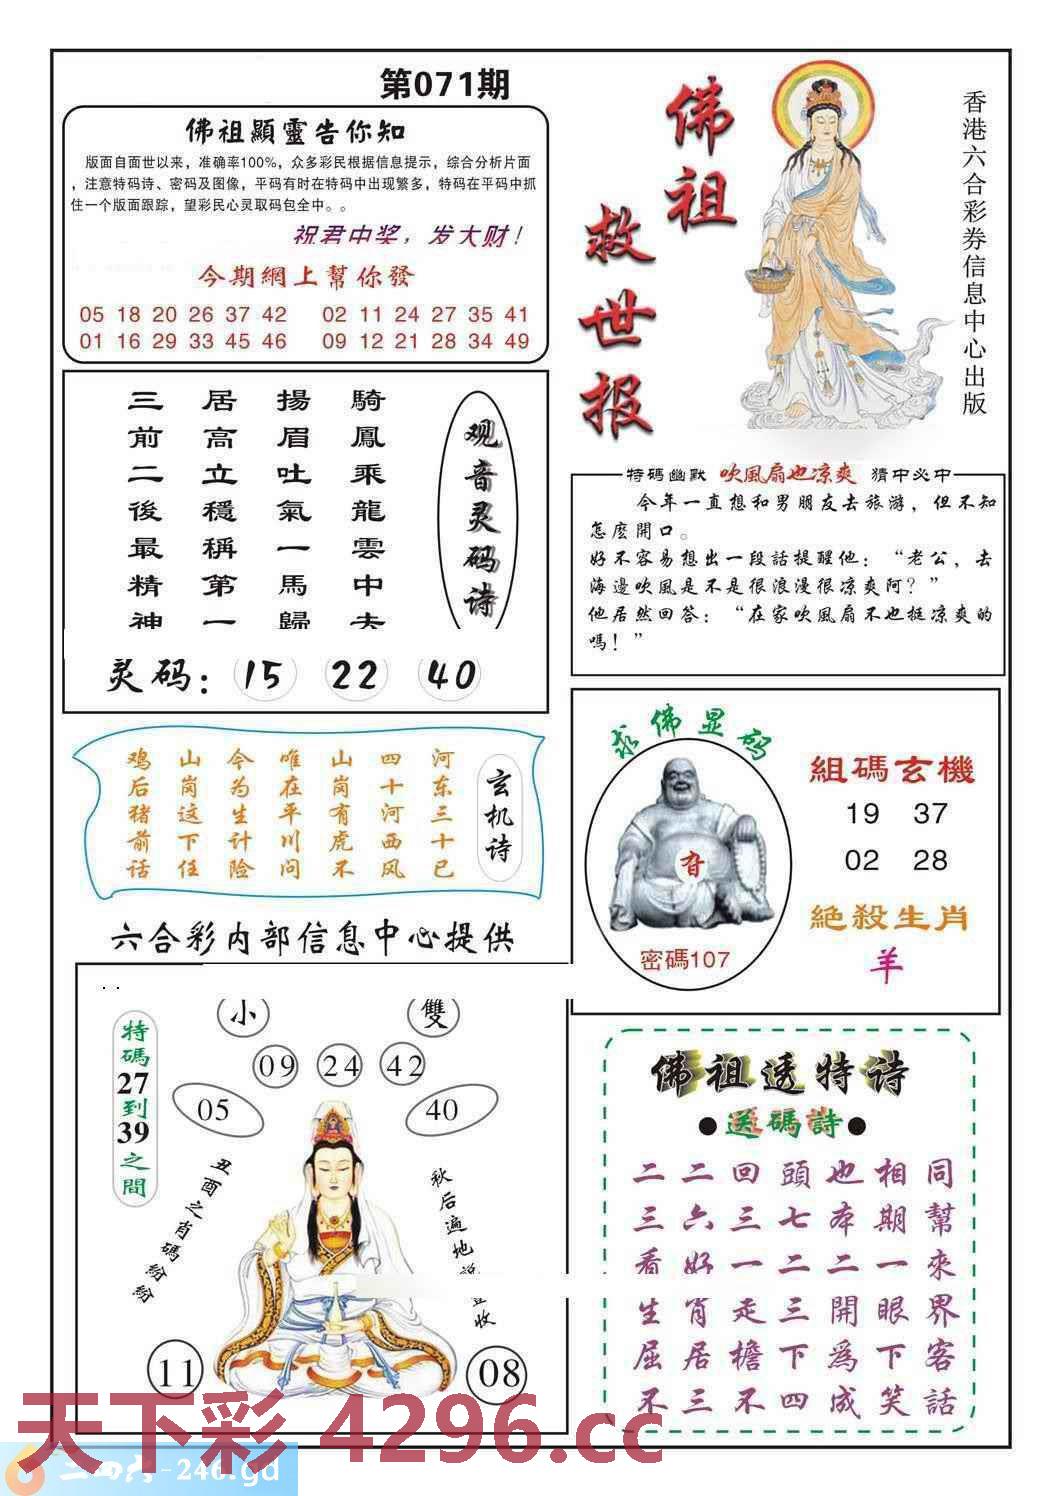 第071期
佛祖顯靈告你知
版面自面世以来，准确率100%，众多彩民根据信息提示，综合分析片面
，注意特码诗、密码及图像，平码有时在特码中出现繁多，特码在平码中抓
住一个版面跟踪，望彩民心灵取码包全中。。
祝君中奖，发大财！
今期網上幫你發
05 18 20 26 37 42 02 11 24 27 35 41
01 16 29 33 45 46 09 12 21 28 34 49
佛祖
救世报
香港六合彩券信息中心出版
观音灵码诗
騎鳳乘龍雲中夫
揚眉吐氣一馬歸
居高立穩稱第一
三前二後最精神
灵码：15 22 40
特碼幽默 吹風扇也凉爽 猜中必中
今年一直想和男朋友去旅游，但不知
怎麽開口。
好不容易想出一段話提醒他：“老公，去
海邊吹風是不是很浪漫很凉爽阿？”
他居然回答：“在家吹風扇不也挺凉爽的
嗎！”
玄机诗
河东三十已
四十河西风
山岗有虎不
唯在平川问
今为生计险
山岗这下任
鸡后猪前话
求佛显码
密碼107
組碼玄機
19 37
02 28
絕殺生肖
羊
六合彩内部信息中心提供
小 雙
09 24 42
05 40
特碼27到39之間
丑酉之肖碼紛紛
秋后遍地
收
11 08
佛祖透特诗
●送碼詩●
二二回頭也相同
三六三七本期幫
看好一二二一來
生肖走三開眼界
屈居檐下為下客
不三不四成笑話
天下彩 4296.cc
二四六-246.gd